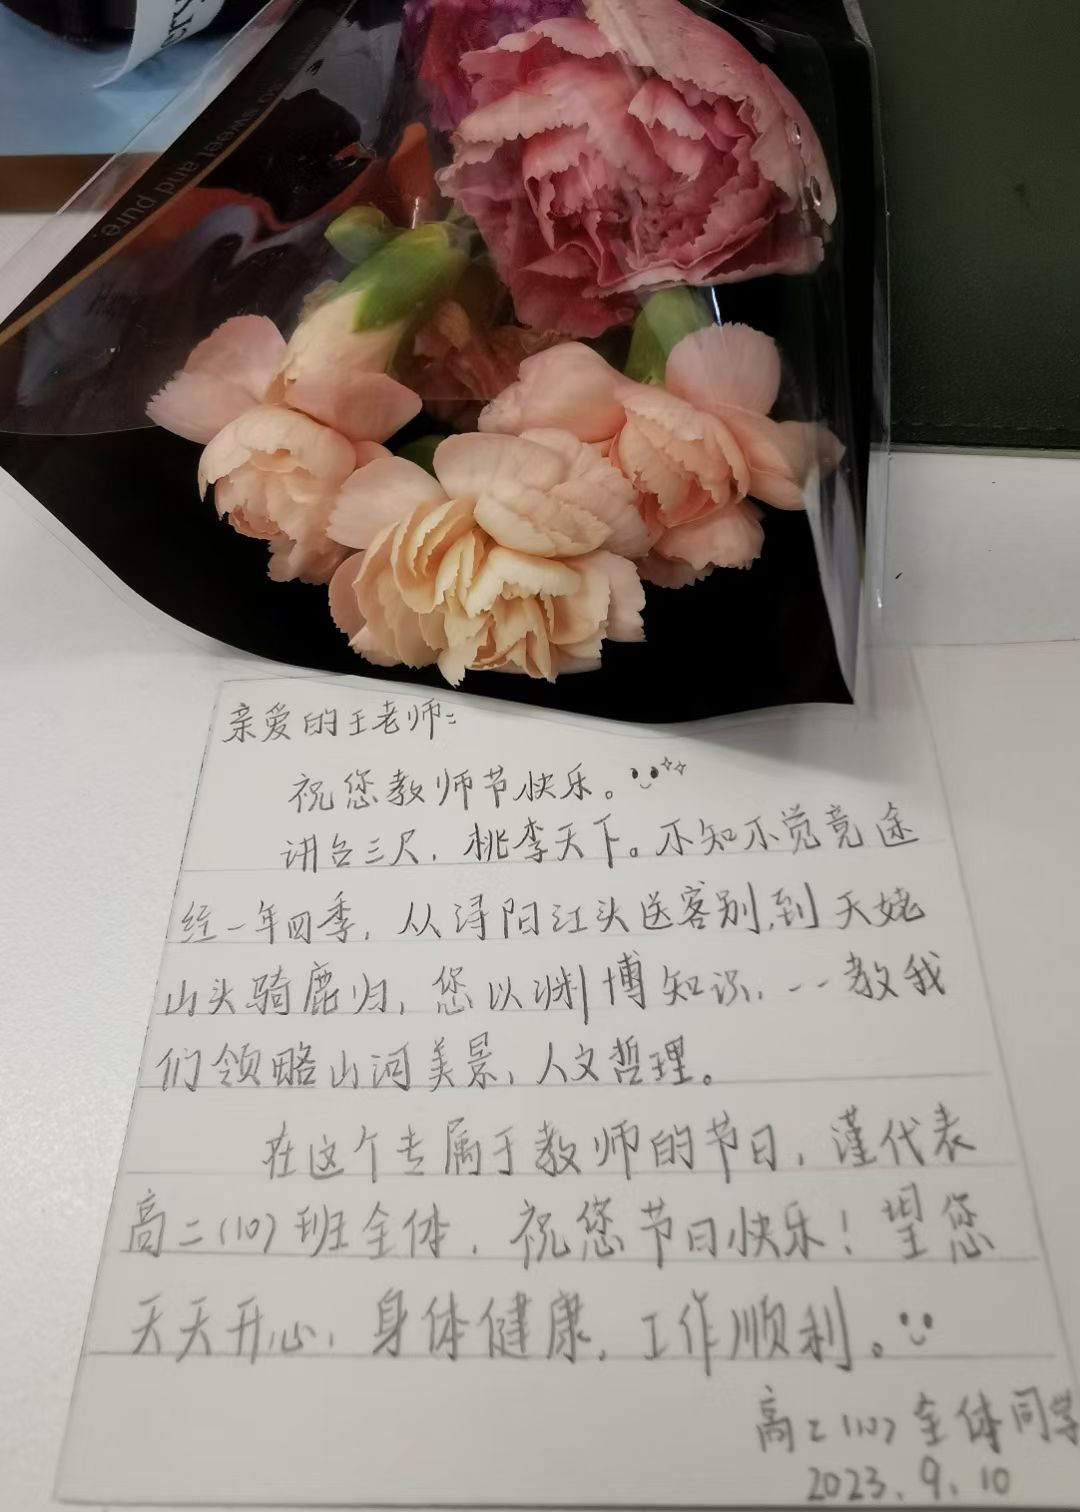 so sweet and pure.
亲爱的王老师:
祝您教师节快乐。
讲台三尺,桃李天下。不知不觉竟途
经一年四季,从浔阳江头送客别,到天姥
山头骑鹿归,您以渊博知识,一一教我
们领略山河美景,人文哲理。
在这个专属于教师的节日,谨代表
高二(10)班全体,祝您节日快乐!望您
天天开心,身体健康,工作顺利。
高二(10)全体同学
2023.9.10